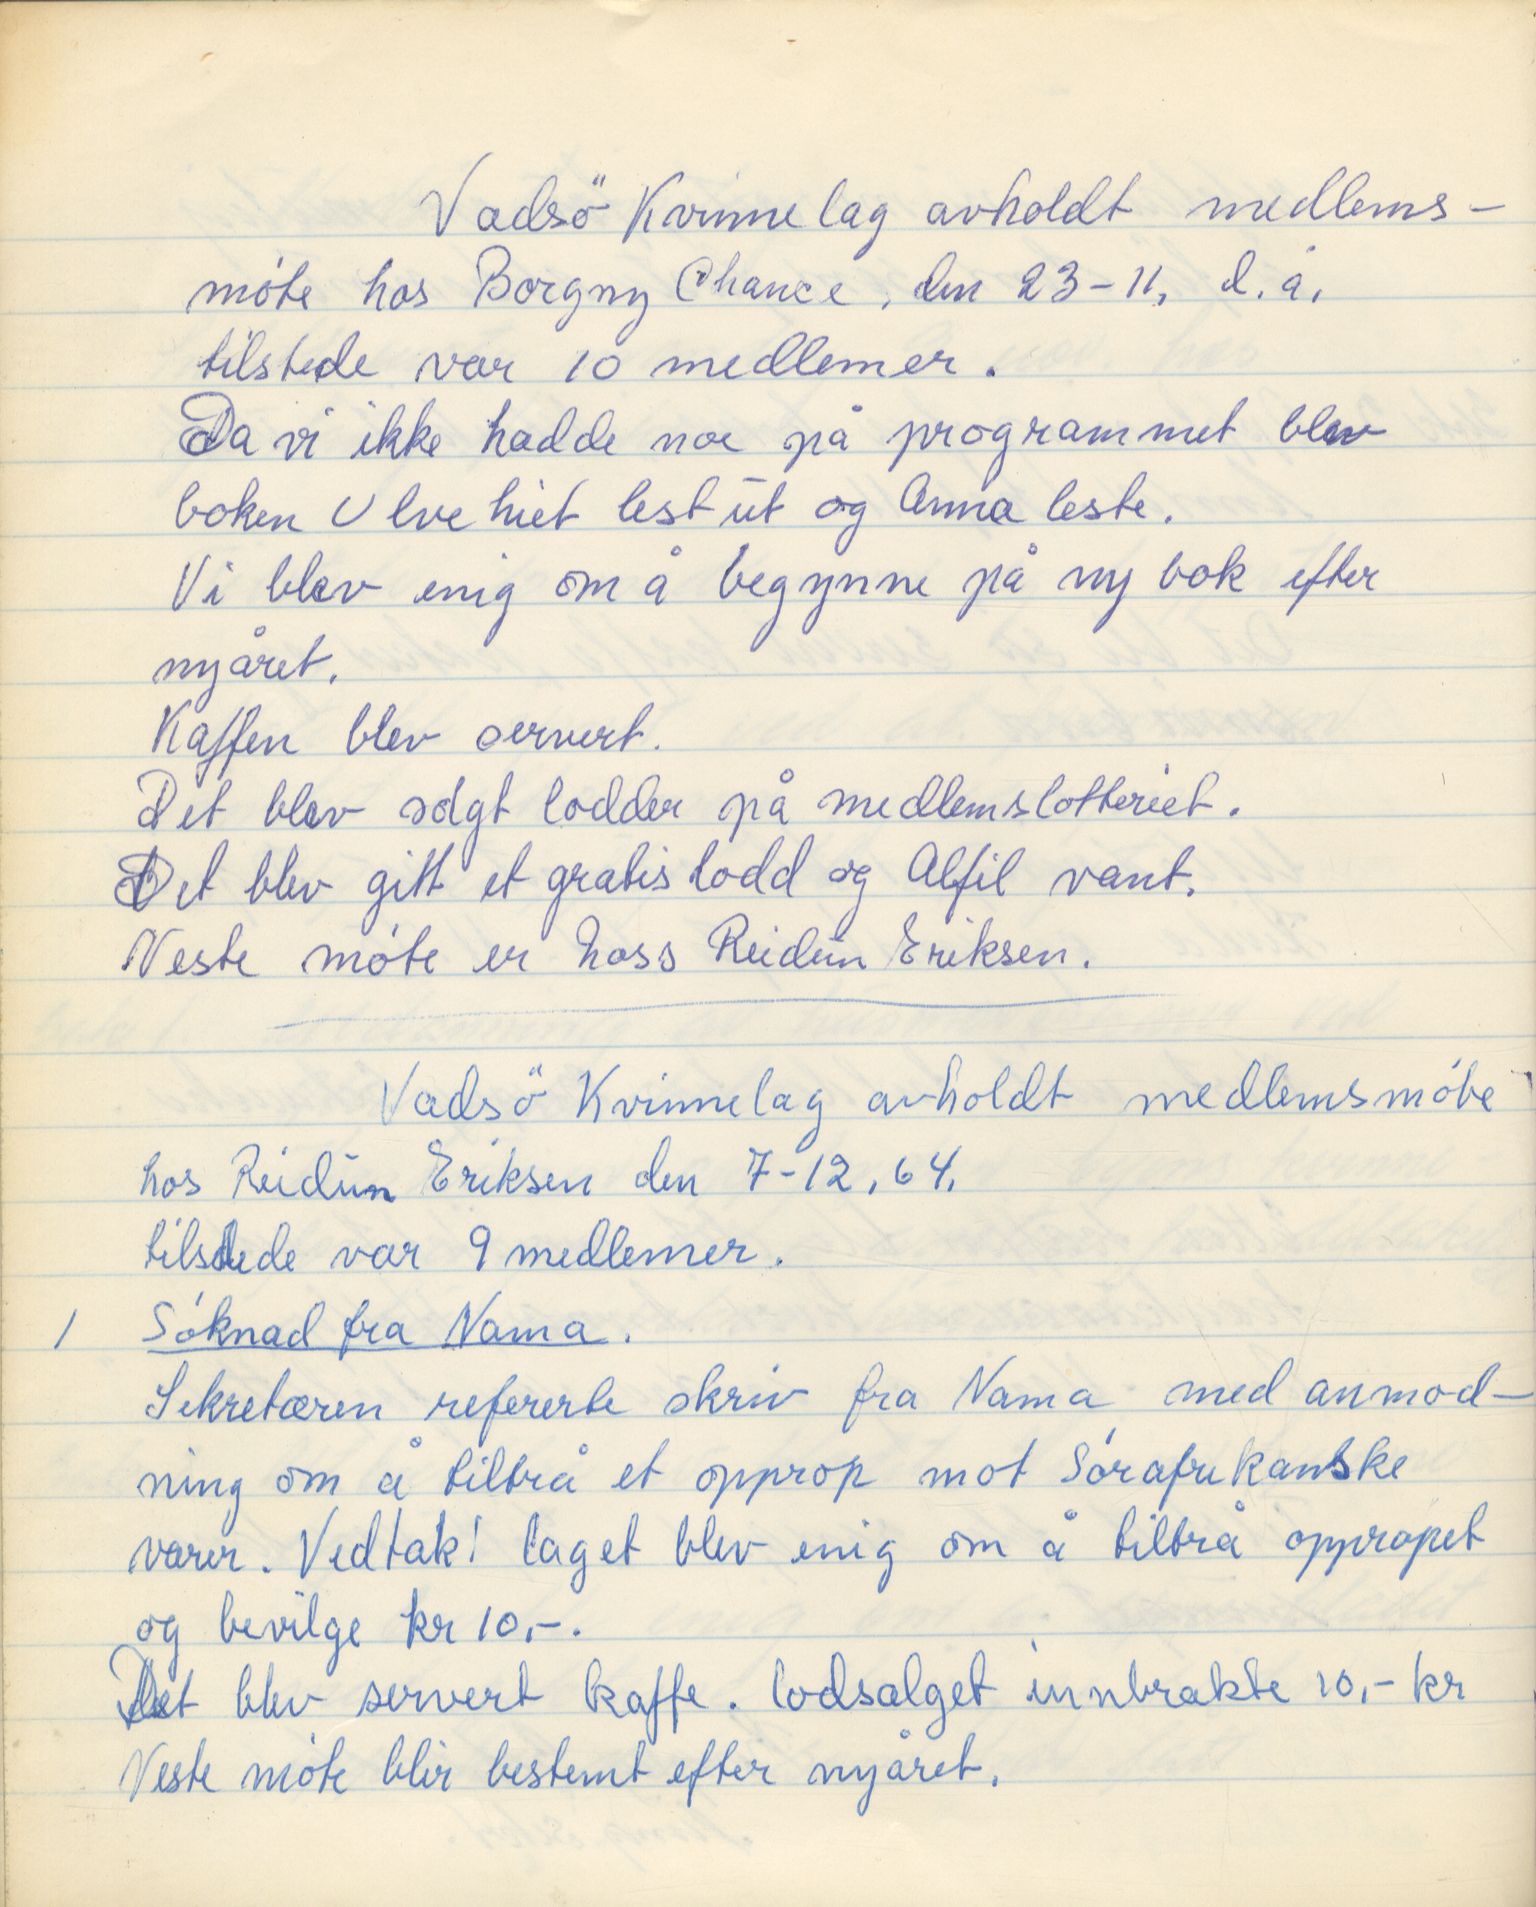 Vadsö Kvinnelag avholdt medlems-
møte hos Borgny Chance, den 23-11, d.å.
tilstede var 10 medlemer.
Da vi ikke hadde noe på programmet blev
boken Ulvehiet lest ut og Anna leste.
Vi blev enig om å begynne på ny bok efter
nyåret.
Kaffen blev servert.
Det blev solgt lodder på medlemslotteriet.
Det blev gitt et gratis lodd og Alfil vant.
Neste møte er hoss Reidun Eriksen.
Vadsö Kvinnelag avholdt medlemsmøte
hos Reidun Eriksen den 7-12, 64.
tilstede var 9 medlemer.
1 Søknad fra Nama.
Sekretæren refererte skriv fra Nama med anmod-
ning om å tiltrå et opprop mot Sørafrikanske
varer. Vedtak! laget blev enig om å tiltrå oppropet
og bevilge kr 10,-.
Det blev servert kaffe. lodsalget innbrakte 10,- kr
Neste møte blir bestemt efter nyåret.